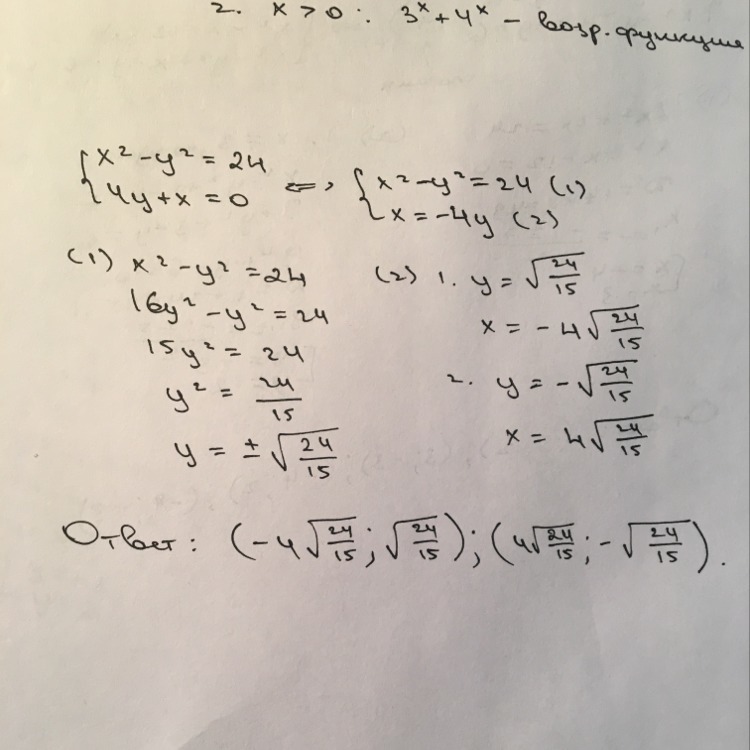 2. x > 0 : 3^x + 4^x – возр. функция
{ x² – y² = 24
{ 4y + x = 0
⇔
{ x² – y² = 24 (1)
{ x = –4y (2)
(1) x² – y² = 24
16y² – y² = 24
15y² = 24
y² = 24/15
y = ± √(24/15)
(2) 1. y = √(24/15)
x = – 4√(24/15)
2. y = – √(24/15)
x = 4√(24/15)
Ответ: (– 4√(24/15) ; √(24/15)) ; (4√(24/15) ; – √(24/15)).